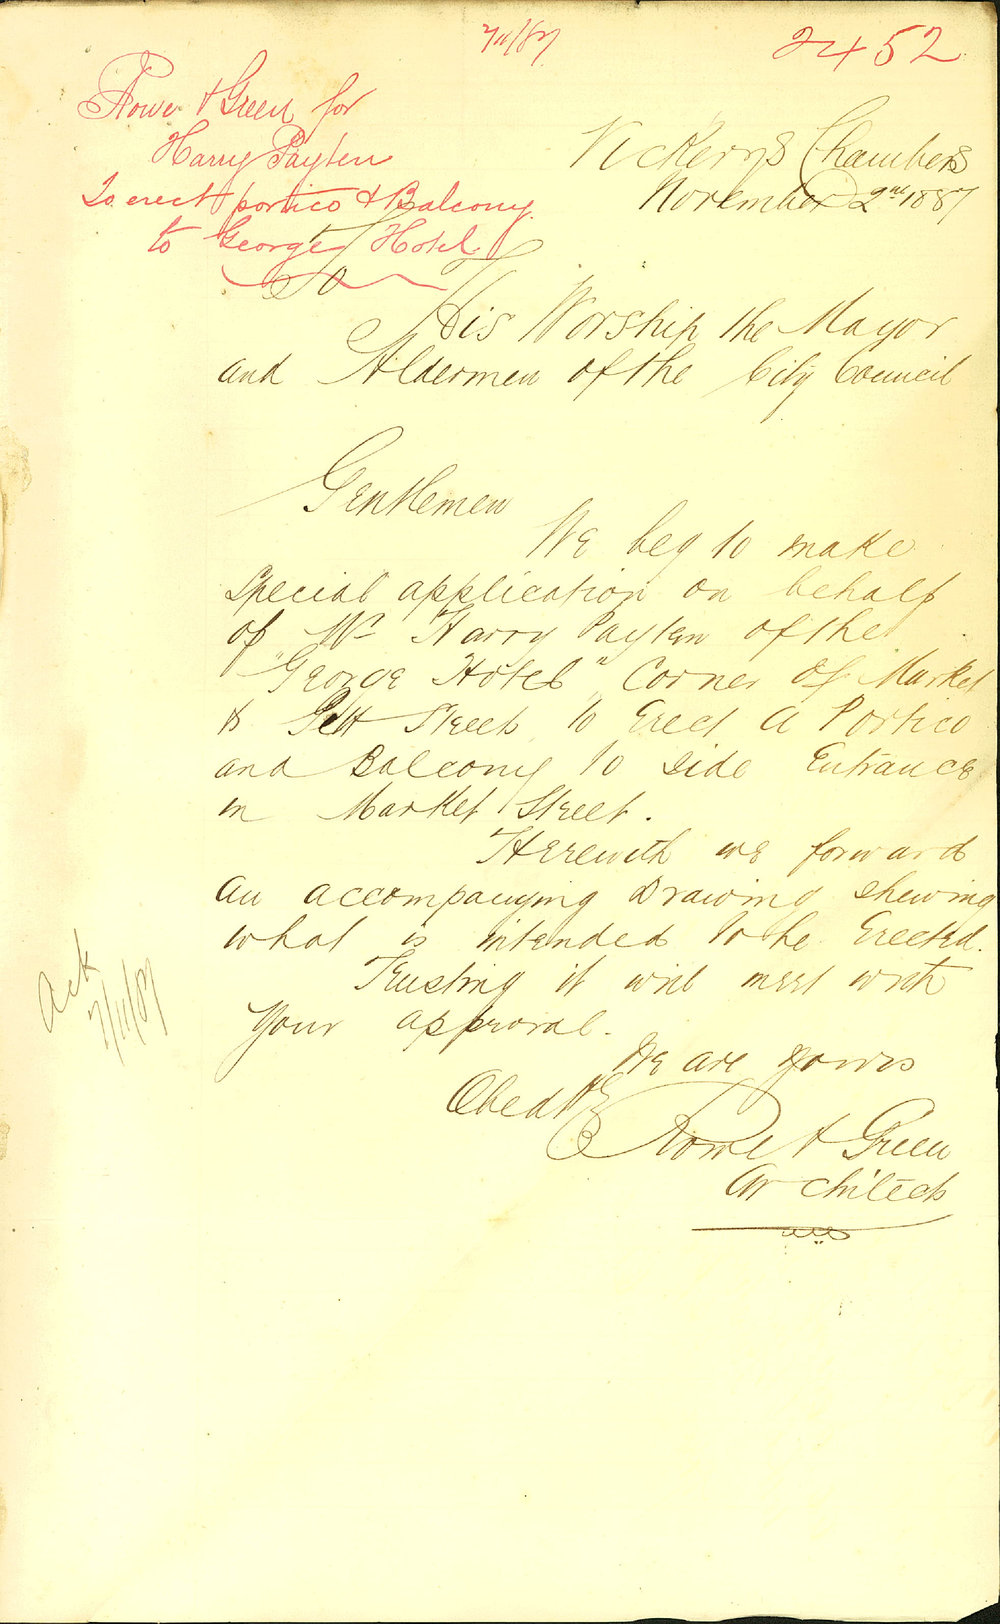 7/11/87
2452
Rowe & Green for
Harry Payten
To erect portico & Balcony
to George Hotel
Vickerys Chambers
November 2nd 1887
To
His Worship the Mayor
and Aldermen of the City Council
Gentlemen
We beg to make
special application on behalf
of Mr Harry Payten of the
"George Hotel" Corner of Market
& Pitt Streets to Erect a Portico
and Balcony to side Entrance
in Market Street.
Herewith we forward
an accompanying Drawing shewing
what is intended to be Erected.
Trusting it will meet with
your approval.
Ack
7/11/87
We are yours
Obedtly
Rowe & Green
Architects